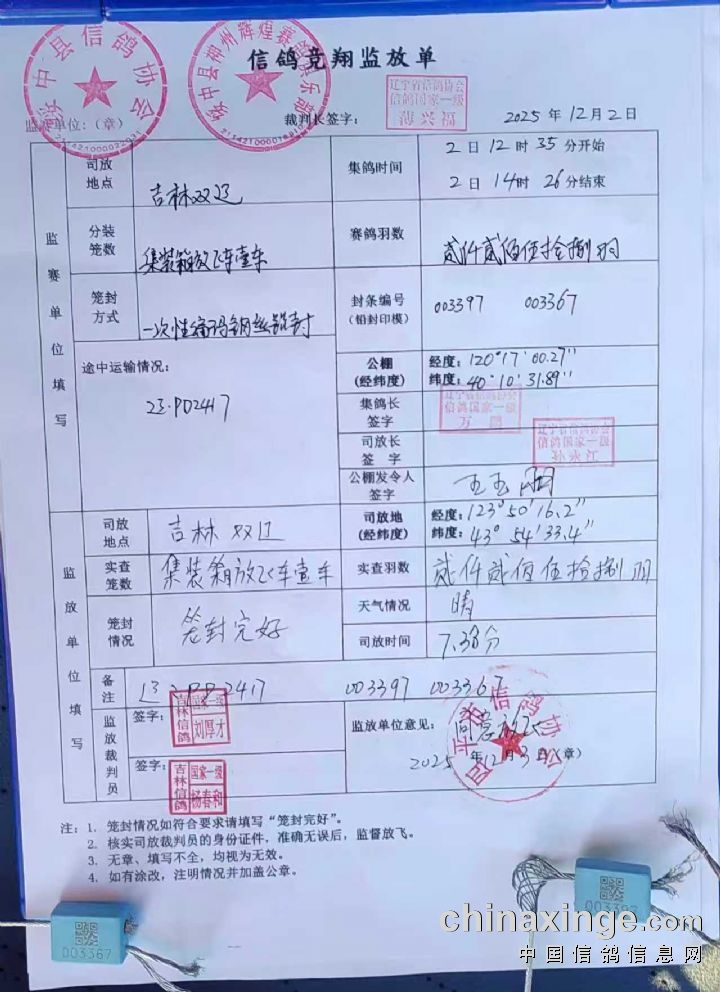 绥中县信鸽协会
绥中县神州辉煌赛鸽俱乐部
信鸽竞翔监放单
监放单位:(章)
裁判长签字:
辽宁省信鸽协会
信鸽国家一级
薄兴福
2025 年 12 月 2 日
监赛单位填写
司放地点
吉林双辽
集鸽时间
2 日 12 时 35 分开始
2 日 14 时 26 分结束
分装笼数
集装箱放飞车壹车
赛鸽羽数
贰仟贰佰伍拾捌羽
笼封方式
一次性编码钢丝绳封
封条编号
(铅封印模)
003397 003367
途中运输情况:
公棚
(经纬度)
经度:120°17′00.27″
纬度:40°10′31.89″
集鸽长签字
辽宁省信鸽协会
信鸽国家一级
司放长签字
辽宁省信鸽协会
信鸽国家一级
孙永江
公棚发令人签字
监放单位填写
司放地点
吉林双辽
司放地
(经纬度)
经度:123°50′16.2″
纬度:43°54′33.4″
实查笼数
集装箱放飞车壹车
实查羽数
贰仟贰佰伍拾捌羽
笼封情况
笼封完好
天气情况
晴
司放时间
7.38分
备注
003397 003367
监放裁判员
签字:
吉林信鸽
国家一级
刘厚才
签字:
吉林信鸽
国家一级
杨春和
监放单位意见:
同意放飞
2025 年 12 月 3 日(章)
注: 1. 笼封情况如符合要求请填写“笼封完好”。
2. 核实司放裁判员的身份证件,准确无误后,监督放飞。
3. 无章、填写不全,均视为无效。
4. 如有涂改,注明情况并加盖公章。
003367
003397
chinaxinge.com
中国信鸽信息网